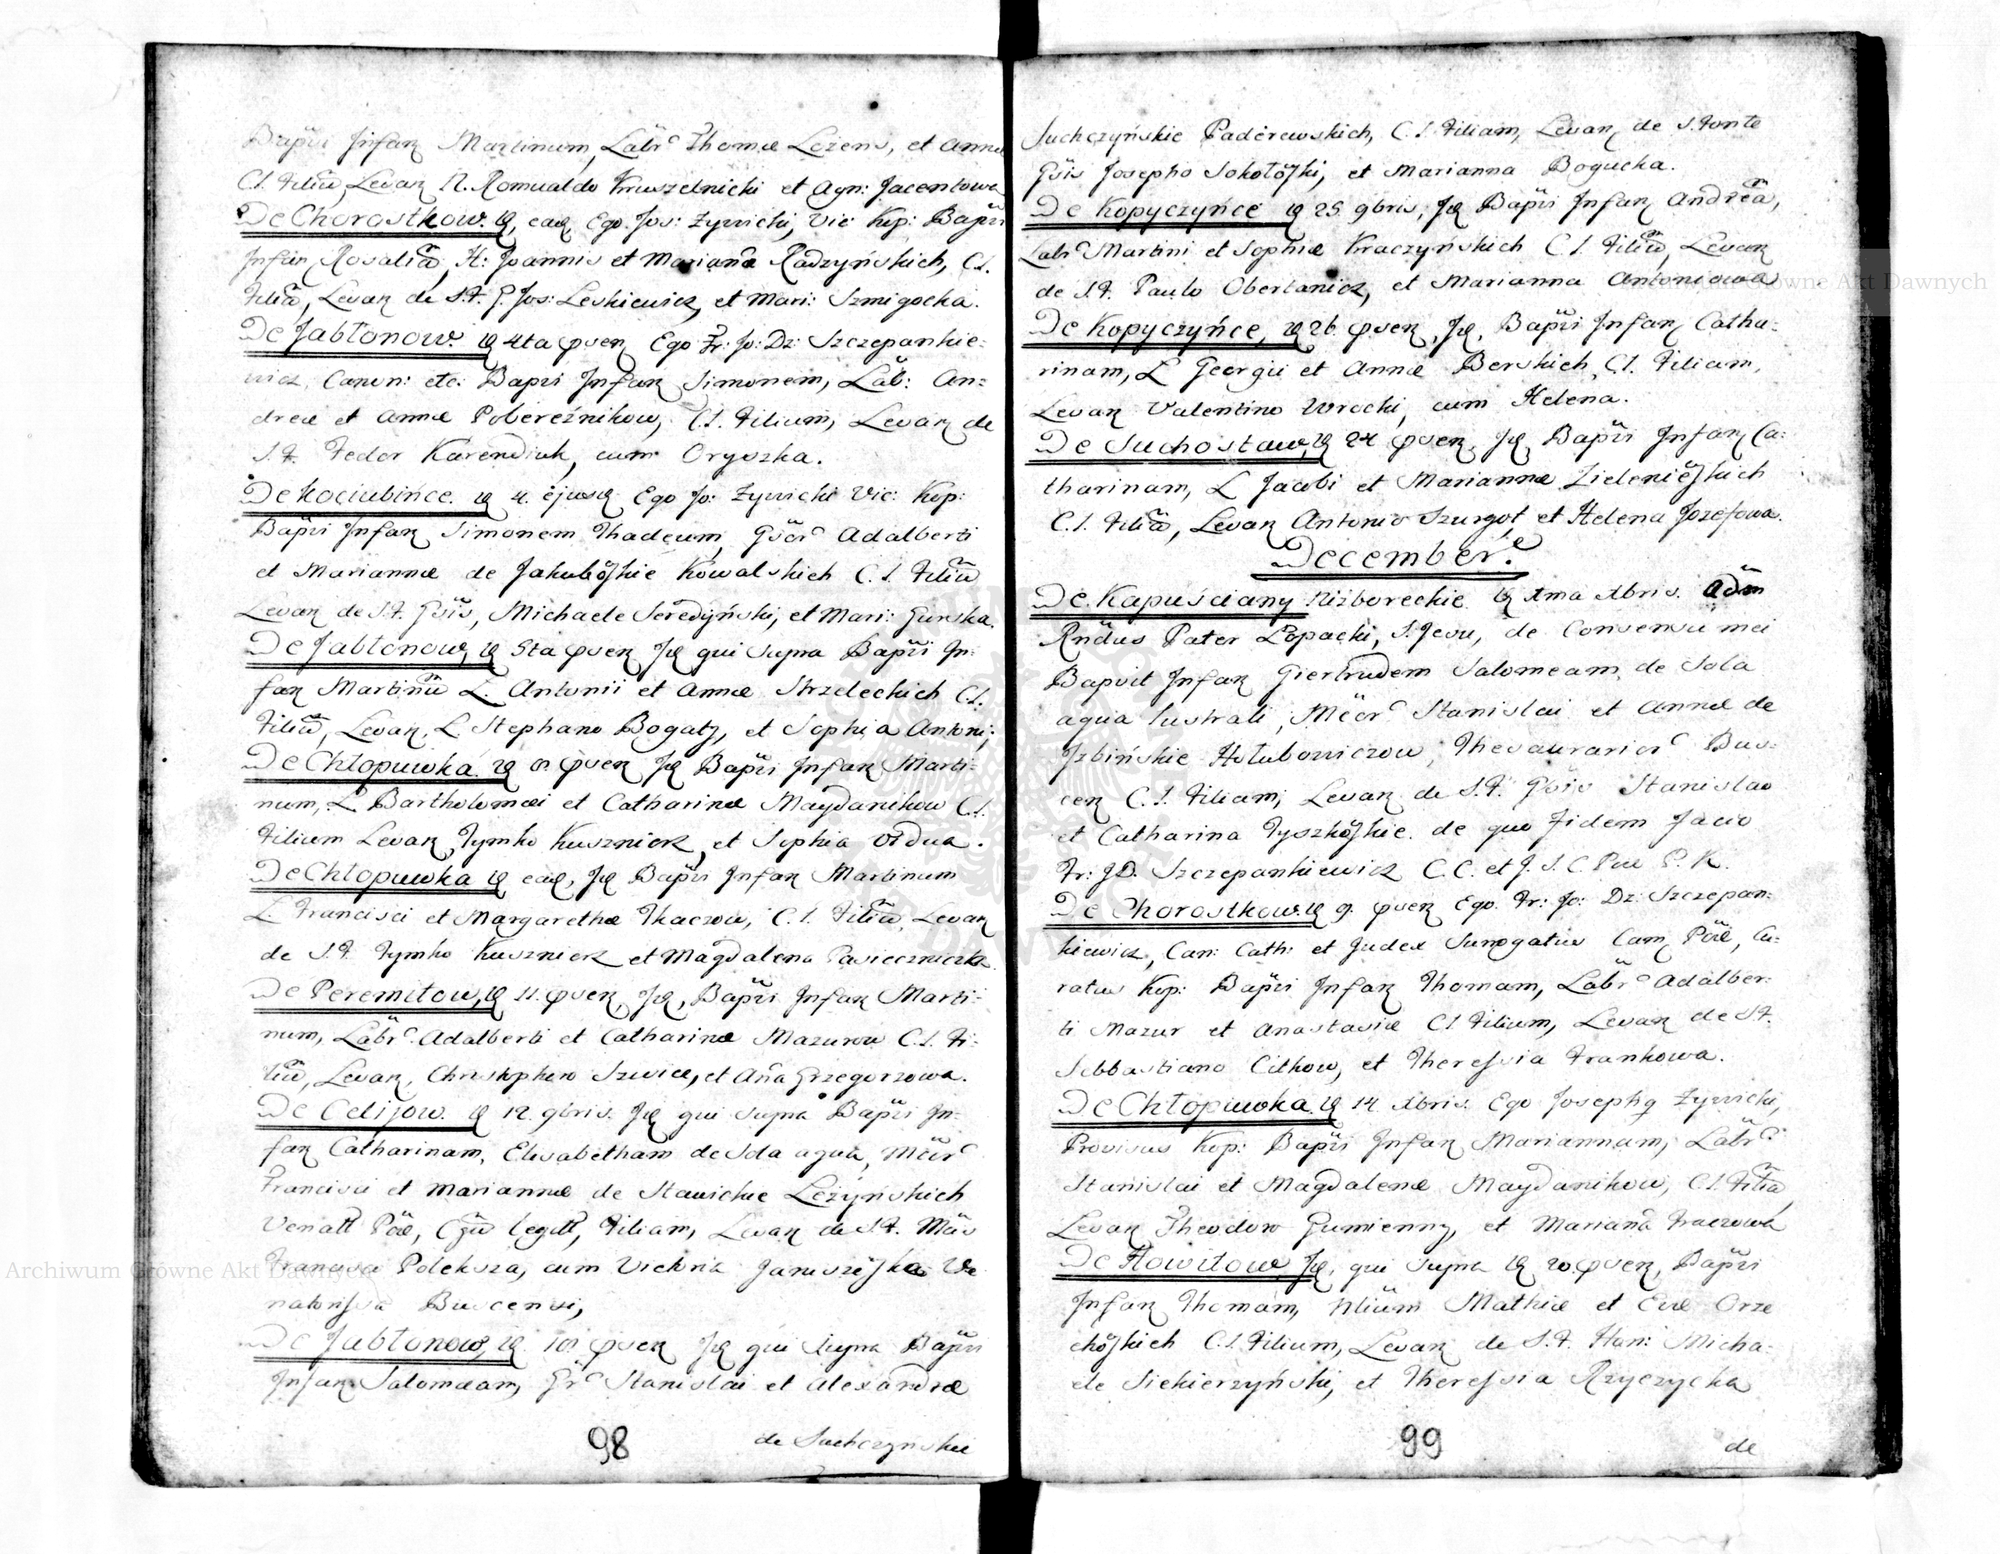 Bapzi Infan Martinum, Labr Thomæ Lezens, et Annæ
C.L. Filiu, Levan N. Romualdo Kruszelnicki et Agn: Jacentowa
De Chorostkow. ead, Ego Jos: Zywicki, Vic: Kop: Bapzi
Infan Rosaliã, H: Joannis et Marianæ Radzyńskich, C.L.
Filiã, Levan de S.F. G. Jos: Leskiewicz, et Mari: Szmigocka.
De Jabłonow. 4ta Ego Fr: Jo: Dz: Szczepankie-
wicz, Canon: etc: Bapzi Infan Simonem, Lab: An-
dreæ et Annæ Pobereźnikow, C.L. Filium, Levan de
S.F. Fedor Karendiuk, cum Oryszka.
De Kociubińce. 4. ejusd Ego Jo: Zywicki Vic: Kop:
Bapzi Infan Simonem Thadeum, Gsor Adalberti
et Mariannæ de Jakubõskie Kowalskich C.L. Filiũ
Levan de S.F. Gsis, Michaele Seredyński, et Mari: Gurska.
De Jabłonow, 5ta qui supra Bapzi In-
fan Martinũ L. Antonii et Annæ Strzeleckich C.L.
Filiũ, Levan, L Stephano Bogaty, et Sophia Antoni;
De Chłopuwka. 8 Bapzi Infan Marti-
num, L Bartholomæi et Catharinæ Maydanikow C.L.
Filium Levan Tymko Kusznierz, et Sophia Vidua.
De Chłopuwka ead, Bapzi Infan Martinum
L. Francisci et Margarethæ Tkaczow, C.L. Filiũ, Levan
de S.F. Tymko Kusznierz et Magdalena Pasieczniczka.
De Peremiłow, 11. Bapzi Infan Marti-
num, Labr. Adalberti et Catharinæ Mazurow C.L. Fi-
liũ, Levan, Christophoro Szwiec, et Aña Grzegorzowa.
De Celijow. 12. 9bris. qui supra Bapzi In-
fan Catharinam, Elisabetham de Sola aqua,
Francisci et Mariannæ de Stawickie Leżyńskich
Filiam, Levan de S.F.
Francisco Poleksza, cum Victoria Januszẽska Ve
natorissa Buscensi,
De Jabłonow, 18 qui supra Bapzi
Infan Salomæam, Gr Stanislai et Alexandræ
98
de Suchczynskie
Suchczyńskie Paderewskich, C.L. Filiam, Levan de S. Fonte
Gsis Josepho Sokołõski, et Marianna Bogucka.
De Kopyczyńce 25. 9bris, Bapzi Infan Andreã,
Labr Martini et Sophiæ Kraczyńskich C.L. Filiũ, Levan
de S.F. Paulo Obertanicz, et Marianna Antoniowa
De Kopyczyńce, 26. Bapzi Infan Catha-
rinam, L Georgii et Annæ Berskich, C.L. Filiam,
Levan Valentino Wrocki, cum Helena.
De Suchostaw, 27 Bapzi Infan Ca-
tharinam, L Jacobi et Mariannæ Zieleniẽskich
C.L. Filiã, Levan Antonio Szurgot et Helena Jozefowa.
December.
De Kapuściany Niżboreckie. Xma Xbris. Adm
Rndus Pater Łopacki, S. Jesu, de Consensu mei
Bapzit Infan Giertrudem Salomeam, de Sola
aqua lustrali, Stanislai et Annæ de
Izbińskie Hołubowiczow, Thesaurarior Bus-
cen C.L. Filiam, Levan de S.F. Gsis Stanislao
et Catharina Tyszkõskie. de quo Fidem Facio
Fr: J.D. Szczepankiewicz C.C. et J.S.C. P. K.
De Chorostkow. 9. Ego Fr: Jo: Dz: Szczepan-
kiewicz, Can: Cath: et Judex Surogatus Cam, Cu-
ratus Kop: Bapzi Infan Thomam, Labr Adalber-
ti Mazur et Anastasiæ C.L. Filium, Levan de S.F.
Sebbastiano Citkow, et Theressia Frankowa.
De Chłopiuwka 14. Xbris. Ego Josephq Zywicki,
Provisus Kop: Bapzi Infan Mariannam, Labr
Stanislai et Magdalenæ Maydanikow, C.L. Filiã,
Levan Theodoro Gumienny, et Mariana Traczowa
De Howiłow qui supra 20. Bapzi
Infan Thomam, Filium Mathiæ et Evæ Orze
chõskich C.L. Filium, Levan de S.F. Micha-
ele Siekierzyński, et Theressia Rzyczycka
99
de
Archiwum Główne Akt Dawnych